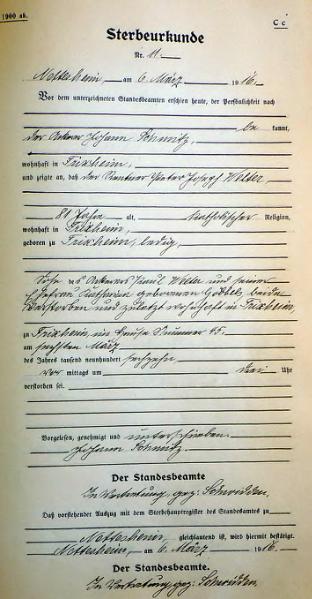 1900 ab.
C c
Sterbeurkunde
Nr. 11.
Nettersheim, am 6. März 1916.
Vor dem unterzeichneten Standesbeamten erschien heute, der Persönlichkeit nach
be kannt,
der Ackerer Johann Schmitz,
wohnhaft in Frixheim,
und zeigte an, daß der Rentner Peter Joseph Welter,
80 Jahre alt, katholischer Religion,
wohnhaft in Frixheim,
geboren zu Frixheim, ledig,
Sohn des Ackerers Paul Welter und seiner
Ehefrau Katharina geborenen Göbbels, beide
verstorben und zuletzt wohnhaft in Frixheim,
zu Frixheim im Hause Nummer 45.
am sechsten März
des Jahres tausend neunhundert sechzehn
vor mittags um drei Uhr
verstorben sei.
Vorgelesen, genehmigt und unterschrieben.
Johann Schmitz
Der Standesbeamte
In Vertretung gez:
Daß vorstehender Auszug mit dem Sterbehauptregister des Standesamtes zu
gleichlautend ist, wird hiermit bestätigt.
am 6. März 1916.
Der Standesbeamte.
In Vertretung gez: